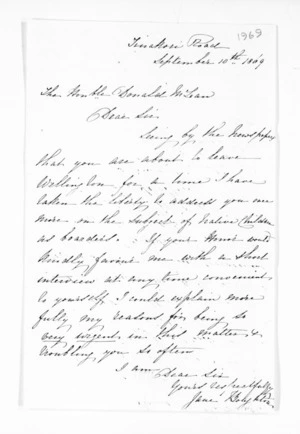 1969
Tinakori Road
September 10th 1869
The Honble Donald McLean
Dear Sir
Seeing by the Newspapers
that you are about to leave
Wellington for a time I have
taken the liberty to address you once
more on the subject of Native Children
as boarders. If your Honor would
Kindly favour me with a short
interview at any time convenient
to yourself I could explain more
fully my reasons for being so
very urgent in this matter &
troubling you so often
I am
Dear Sir
Yours respectfully
Jane